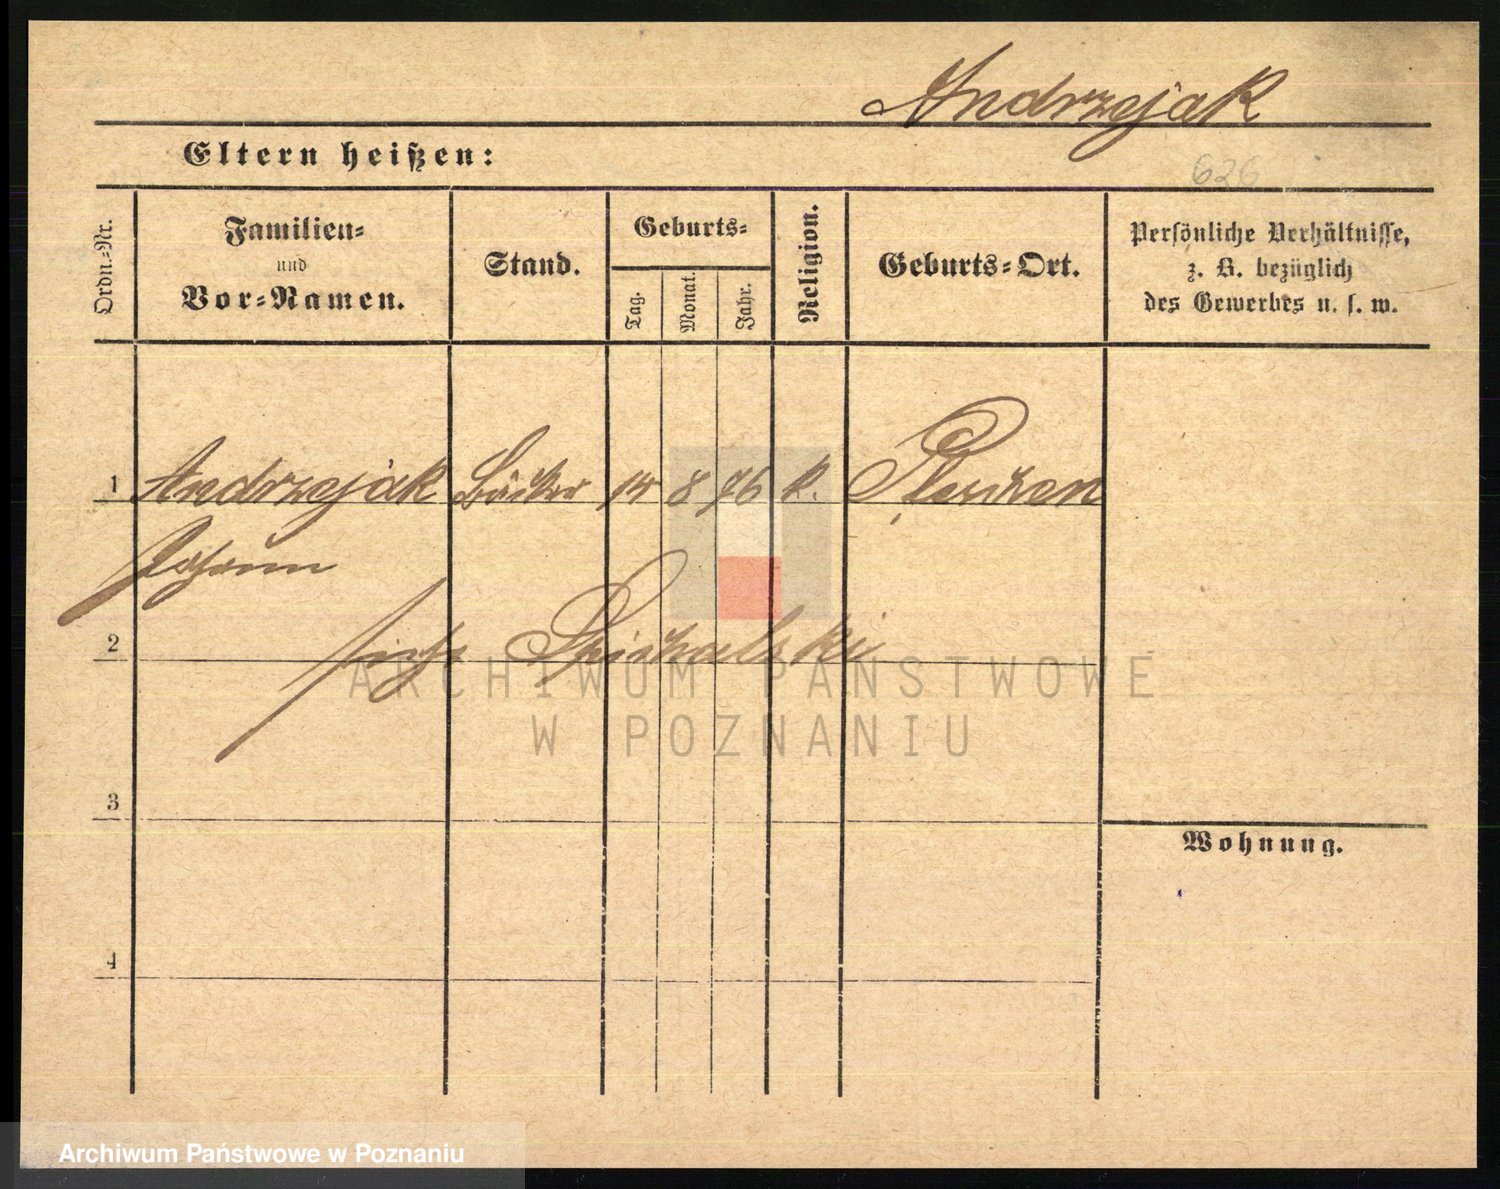 Andrzejak
Eltern heißen:
626
Ordn.-Nr.
Familien-
und
Vor-Namen.
Stand.
Geburts-
Tag.
Monat.
Jahr.
Religion.
Geburts-Ort.
Persönliche Verhältnisse,
z. B. bezüglich
des Gewerbes u. s. w.
1 Andrzejak Bäcker 14 8 76 k. Pleschen
Johann
2 siehe Spichalski
ARCHIWUM PAŃSTWOWE
W POZNANIU
3
Wohnung.
4
Archiwum Państwowe w Poznaniu